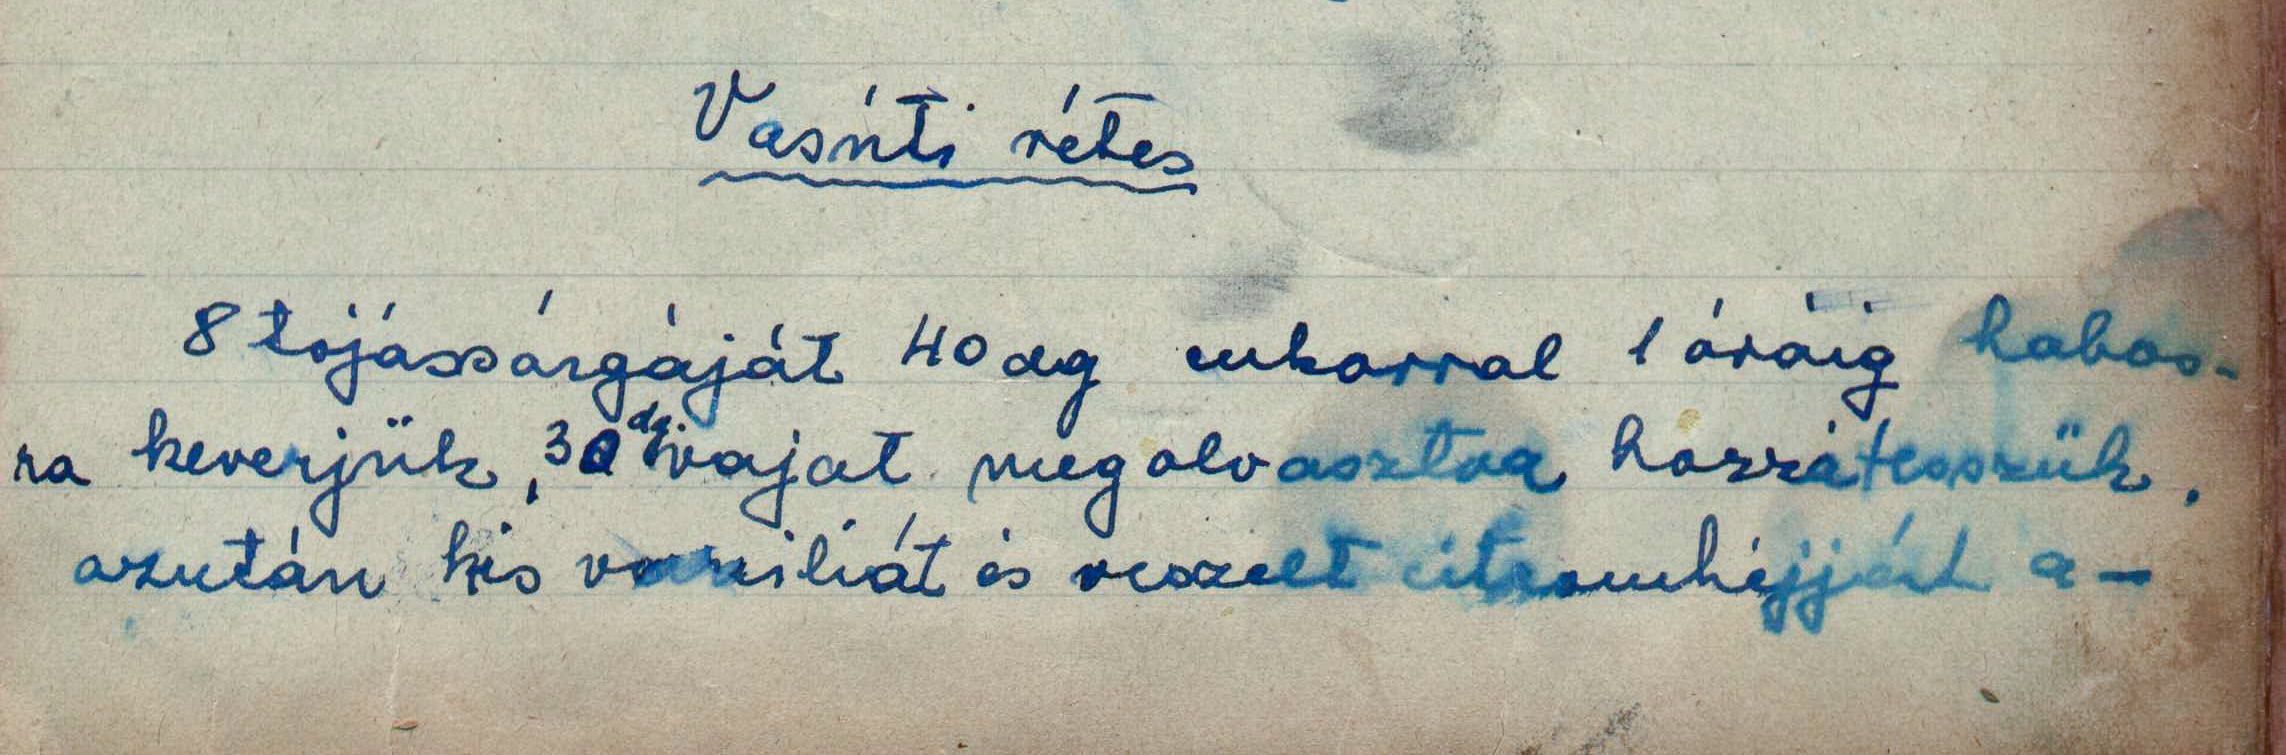 Vasúti rétes
8 tojássárgáját 40 dg cukorral 1 óráig habos-
ra keverjük, 30 dg. vajat megolvasztva hozzátesszük,
azután kis vaniliát és reszelt citromhéjját a-